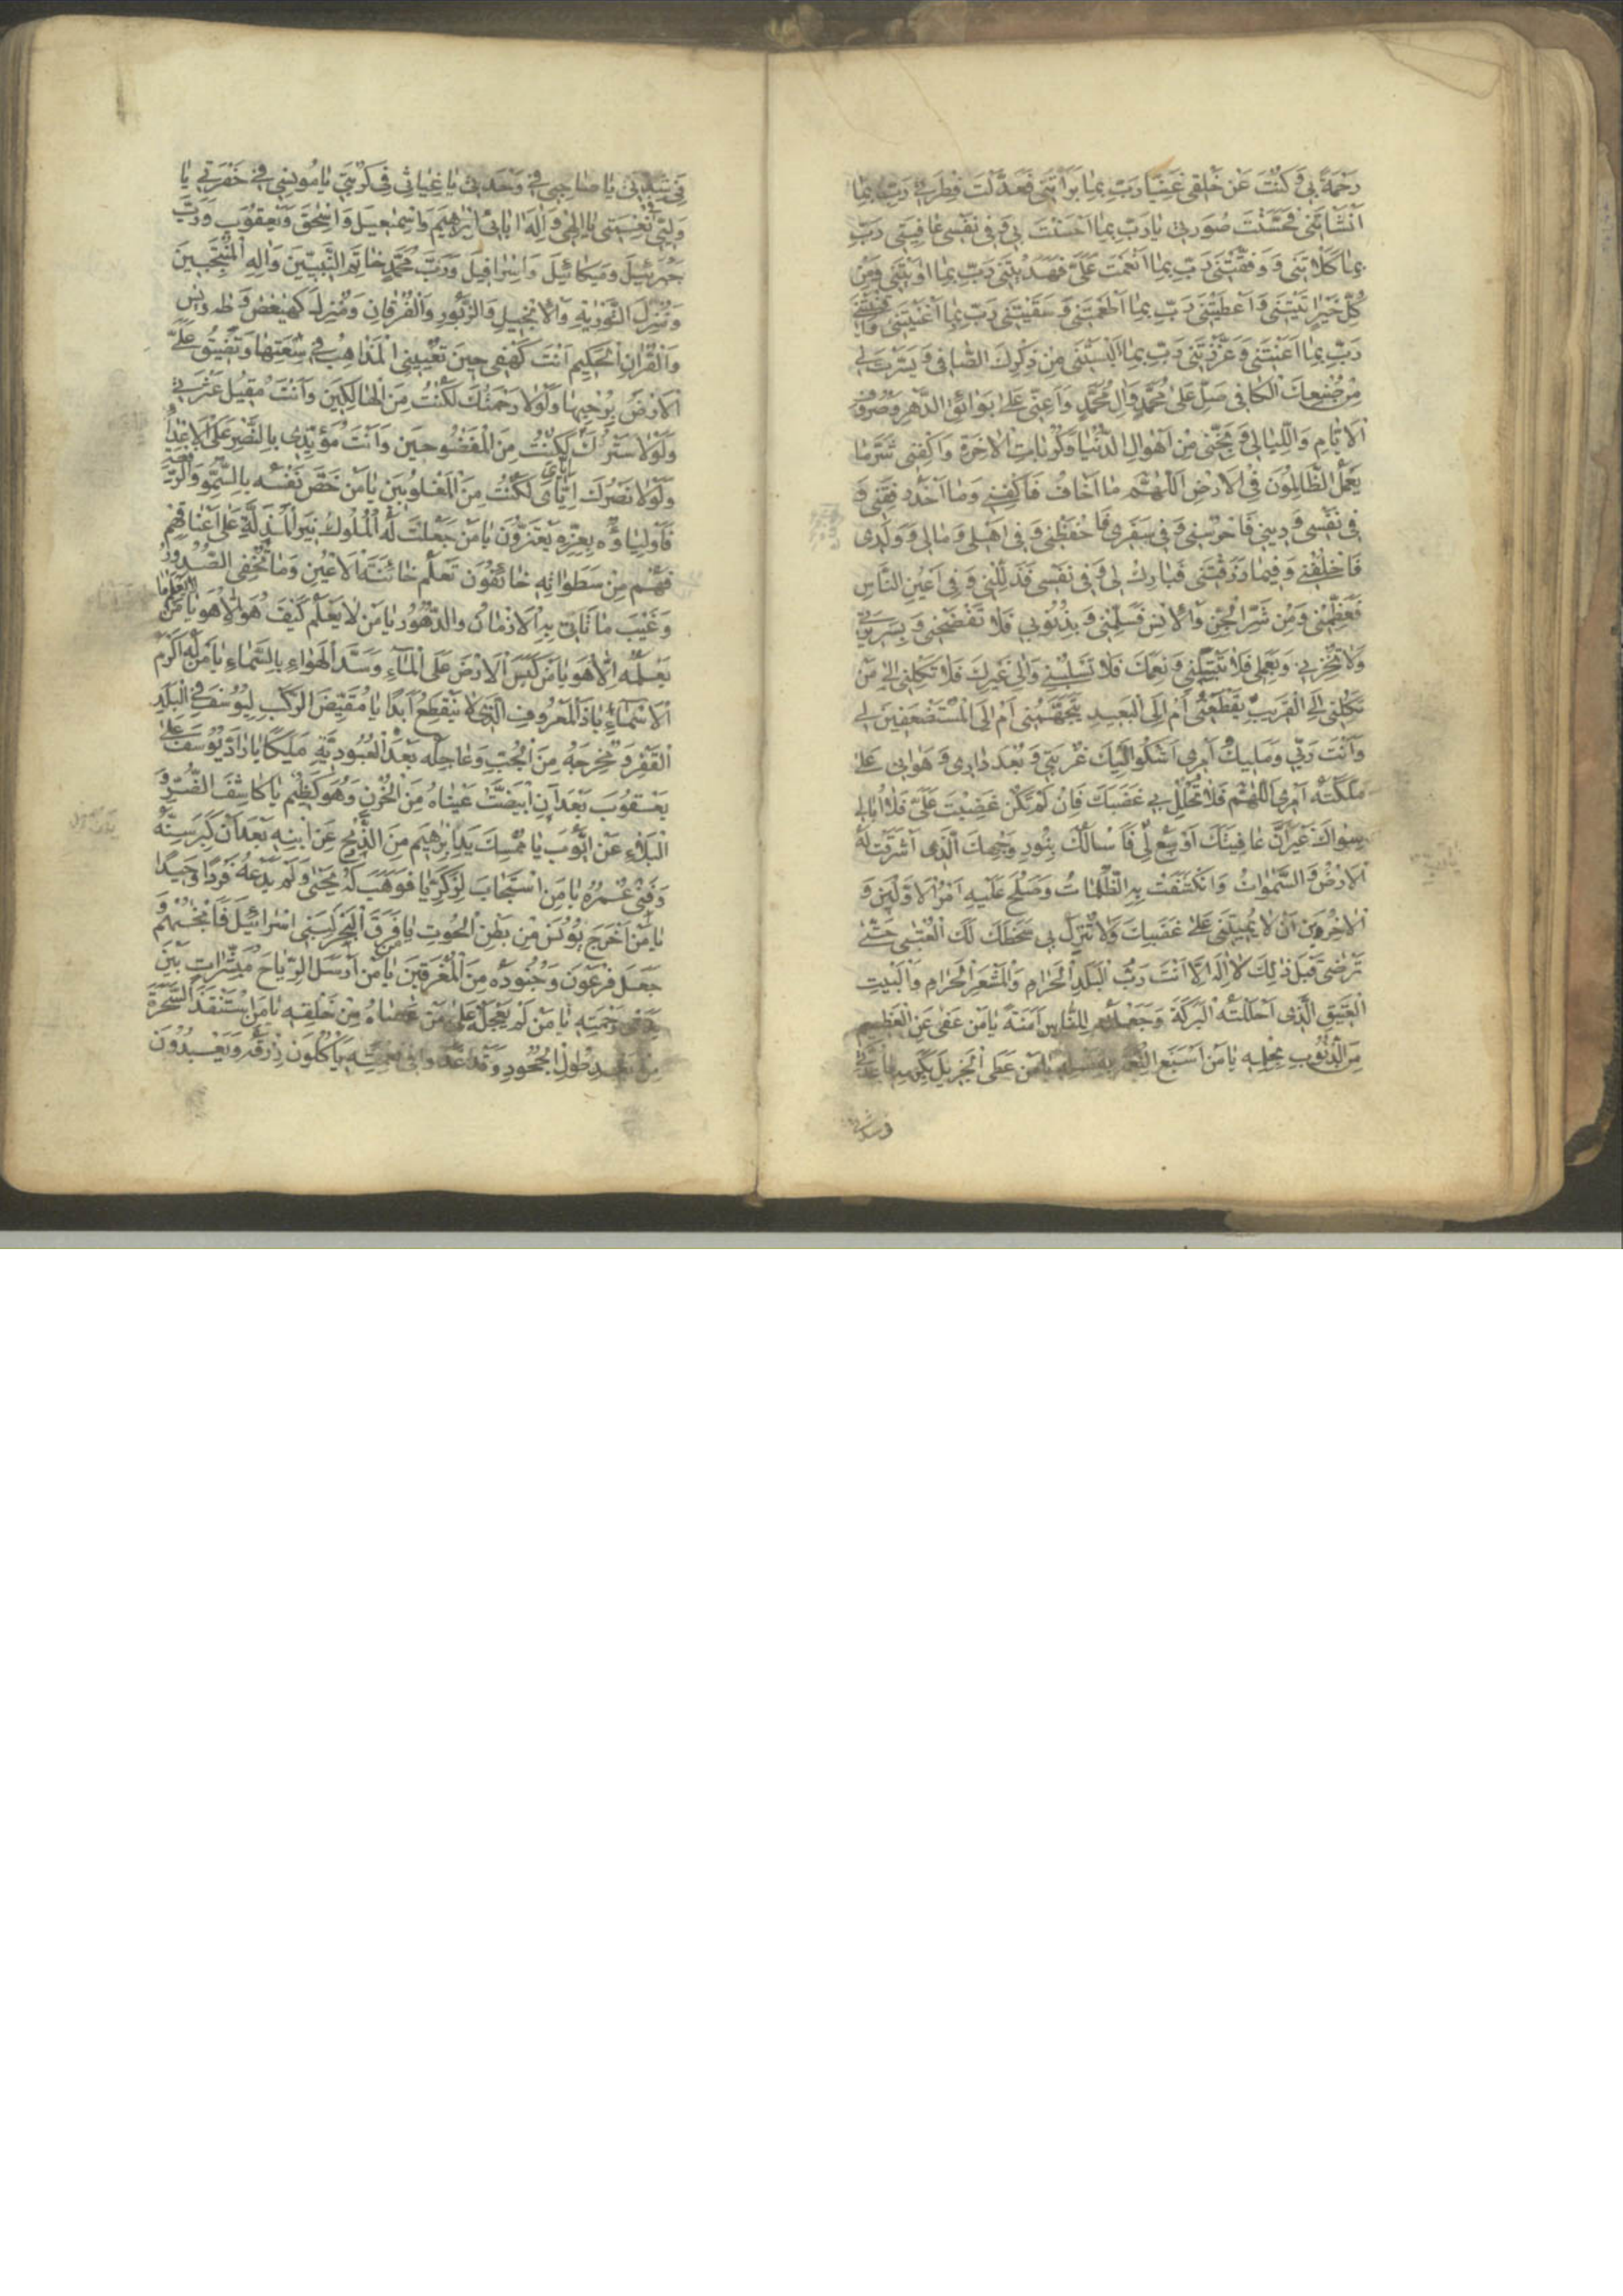 رَحْمَةً بى وَ كُنْتَ عَنْ خَلْقى غَنِيّا رَبِّ بِمٰا بَرَأْتَنى فَعَدَّلْتَ فِطْرَتى رَبِّ بِمٰا
اَنْشَأْتَنى فَحَسَّنْتَ صُورَتى يٰا رَبِّ بِمٰا اَحْسَنْتَ بى وَ فى نَفْسى عٰافَيْتَنى رَبِّ
بِمٰا كَلَاْتَنى وَ وَفَّقْتَنى رَبِّ بِمٰا اَنْعَمْتَ عَلَىَّ فَهَدَيْتَنى رَبِّ بِمٰا اوَيْتَنى وَ مِنْ
كُلِّ خَيْرٍ اتَيْتَنى وَ اَعْطَيْتَنى رَبِّ بِمٰا اَطْعَمْتَنى وَ سَقَيْتَنى رَبِّ بِمٰا اَغْنَيْتَنى وَ اَقْنَيْتَنى
رَبِّ بِمٰا اَعَنْتَنى وَ عَزَّزْتَنى رَبِّ بِمٰا اَلْبَسْتَنى مِنْ ذِكْرِكَ الصّٰافى وَ يَسَّرْتَ لى
مِنْ صُنْعِكَ الْكٰافى صَلِّ عَلىٰ مُحَمَّدٍ وَ الِ مُحَمَّدٍ وَ اَعِنّى عَلىٰ بَوٰائِقِ الدَّهْرِ وَ صُرُوفِ
الْاَيّٰامِ وَ اللَّيٰالى وَ نَجِّنى مِنْ اَهْوٰالِ الدُّنْيٰا وَ كُرُبٰاتِ الْاخِرَةِ وَ اكْفِنى شَرَّ مٰا
يَعْمَلُ الظّٰالِمُونَ فِى الْاَرْضِ اَللّٰهُمَّ مٰا اَخٰافُ فَاكْفِنى وَ مٰا اَحْذَرُ فَقِنى وَ
فى نَفْسى وَ دينى فَاحْرُسْنى وَ فى سَفَرى فَاحْفَظْنى وَ فى اَهْلى وَ مٰالى وَ وَلَدى
فَاخْلُفْنى وَ فيمٰا رَزَقْتَنى فَبٰارِكْ لى وَ فى نَفْسى فَذَلِّلْنى وَ فى اَعْيُنِ النّٰاسِ
فَعَظِّمْنى وَ مِنْ شَرِّ الْجِنِّ وَ الْاِنْسِ فَسَلِّمْنى وَ بِذُنُوبى فَلٰا تَفْضَحْنى وَ بِسَريرَتى
فَلٰا تُخْزِنى وَ بِعَمَلى فَلٰا تَبْتَلِنى وَ نِعَمَكَ فَلٰا تَسْلُبْنى وَ اِلىٰ غَيْرِكَ فَلٰا تَكِلْنى اِلىٰ مَنْ
تَكِلُنى اِلَى الْقَريبِ يَقْطَعُنى اَمْ اِلَى الْبَعيدِ يَتَجَهَّمُنى اَمْ اِلَى الْمُسْتَضْعِفينَ لى
وَ اَنْتَ رَبّى وَ مَليكُ اَمْرى اَشْكُو اِلَيْكَ غُرْبَتى وَ بُعْدَ دٰارى وَ هَوٰانى عَلىٰ
مَلَّكْتَهُ اَمْرى اَللّٰهُمَّ فَلٰا تُحْلِلْ بى غَضَبَكَ فَاِنْ لَمْ تَكُنْ غَضِبْتَ عَلَىَّ فَلٰا اُبٰالى
سِوٰاكَ غَيْرَ اَنَّ عٰافِيَتَكَ اَوْسَعُ لى فَاَسْاَلُكَ بِنُورِ وَجْهِكَ الَّذى اَشْرَقَتْ لَهُ
الْاَرْضُ وَ السَّمٰوٰاتُ وَ انْكَشَفَتْ بِهِ الظُّلُمٰاتُ وَ صَلُحَ عَلَيْهِ اَمْرُ الْاَوَّلينَ وَ
الْاخِرينَ اَنْ لٰا تُميتَنى عَلىٰ غَضَبِكَ وَ لٰا تُنْزِلَ بى سَخَطَكَ لَكَ الْعُتْبىٰ حَتّىٰ
تَرْضىٰ قَبْلَ ذٰلِكَ لٰا اِلٰهَ اِلّٰا اَنْتَ رَبُّ الْبَلَدِ الْحَرٰامِ وَ الْمَشْعَرِ الْحَرٰامِ وَ الْبَيْتِ
الْعَتيقِ الَّذى اَحْلَلْتَهُ الْبَرَكَةَ وَ جَعَلْتَهُ لِلنّٰاسِ اَمَنَةً يٰا مَنْ عَفىٰ عَنِ الْعَظيمِ
مِنَ الذُّنُوبِ بِحِلْمِهِ يٰا مَنْ اَسْبَغَ النِّعْمَةَ بِفَضْلِهِ يٰا مَنْ عَطَى الْجَزيلَ بِكَرَمِهِ يٰا عُدَّتى
فى شِدَّتى يٰا صٰاحِبى فى وَحْدَتى يٰا غِيٰاثى فى كُرْبَتى يٰا مُونِسى فى حُفْرَتى يٰا
وَلِيّى فى نِعْمَتى يٰا اِلٰهى وَ اِلٰهَ ابٰائى اِبْرٰهيمَ وَ اِسْمٰعيلَ وَ اِسْحٰقَ وَ يَعْقُوبَ وَ رَبَّ
جَبْرَئيلَ وَ ميكٰائيلَ وَ اِسْرٰافيلَ وَ رَبَّ مُحَمَّدٍ خٰاتِمِ النَّبِيّينَ وَ الِهِ الْمُنْتَجَبينَ
وَ مُنْزِلَ التَّوْرٰيةِ وَ الْاِنْجيلِ وَ الزَّبُورِ وَ الْفُرْقٰانِ وَ مُنْزِلَ كٓهٰيٰعٓصٓ وَ طٰه وَ يٰس
وَ الْقُرْانِ الْحَكيمِ اَنْتَ كَهْفى حينَ تُعْيينِى الْمَذٰاهِبُ فى سَعَتِهٰا وَ تَضيقُ عَلَىَّ
الْاَرْضُ بِرُحْبِهٰا وَ لَوْلٰا رَحْمَتُكَ لَكُنْتُ مِنَ الْهٰالِكينَ وَ اَنْتَ مُقيلُ عَثْرَتى
وَ لَوْلٰا سَتْرُكَ لَكُنْتُ مِنَ الْمَفْضُوحينَ وَ اَنْتَ مُؤَيِّدى بِالنَّصْرِ عَلَى الْاَعْدٰاءِ
وَ لَوْلٰا نَصْرُكَ اِيّٰاىَ لَكُنْتُ مِنَ الْمَغْلُوبينَ يٰا مَنْ خَصَّ نَفْسَهُ بِالسُّمُوِّ وَ الرِّفْعَةِ
فَاَوْلِيٰاؤُهُ بِعِزِّهِ يَعْتَزُّونَ يٰا مَنْ جَعَلَتْ لَهُ الْمُلُوكُ نيرَ الْمَذَلَّةِ عَلىٰ اَعْنٰاقِهِمْ
فَهُمْ مِنْ سَطَوٰاتِهِ خٰائِفُونَ تَعْلَمُ خٰائِنَةَ الْاَعْيُنِ وَ مٰا تُخْفِى الصُّدُورُ
وَ غَيْبَ مٰا تَأْتى بِهِ الْاَزْمٰانُ وَ الدُّهُورُ يٰا مَنْ لٰا يَعْلَمُ كَيْفَ هُوَ اِلّٰا هُوَ يٰا مَنْ
يَعْلَمُهُ اِلّٰا هُوَ يٰا مَنْ كَبَسَ الْاَرْضَ عَلَى الْمٰاءِ وَ سَدَّ الْهَوٰاءَ بِالسَّمٰاءِ يٰا مَنْ لَهُ اَكْرَمُ
الْاَسْمٰاءِ يٰا ذَا الْمَعْرُوفِ الَّذى لٰا يَنْقَطِعُ اَبَدًا يٰا مُقَيِّضَ الرَّكْبِ لِيُوسُفَ فِى الْبَلَدِ
الْقَفْرِ وَ مُخْرِجَهُ مِنَ الْجُبِّ وَ جٰاعِلَهُ بَعْدَ الْعُبُودِيَّةِ مَلِيكًا يٰا رٰادَّ يُوسُفَ عَلىٰ
يَعْقُوبَ بَعْدَ اَنِ ابْيَضَّتْ عَيْنٰاهُ مِنَ الْحُزْنِ وَ هُوَ كَظيمٌ يٰا كٰاشِفَ الضُّرِّ وَ
الْبَلٰاءِ عَنْ اَيُّوبَ يٰا مُمْسِكَ يَدِ اِبْرٰهيمَ مِنَ الذَّبْحِ عَنْ اِبْنِهِ بَعْدَ اَنْ كَبُرَ سِنُّهُ
وَ فَنِىَ عُمْرُهُ يٰا مَنِ اسْتَجٰابَ لِزَكَرِيّٰا فَوَهَبَ لَهُ يَحْيىٰ وَ لَمْ يَدَعْهُ فَرْدًا وَحيدًا
يٰا مَنْ اَخْرَجَ يُونُسَ مِنْ بَطْنِ الْحُوتِ يٰا مَنْ فَرَقَ الْبَحْرَ لِبَنى اِسْرٰائيلَ فَاَنْجٰهُمْ وَ
جَعَلَ فِرْعَوْنَ وَ جُنُودَهُ مِنَ الْمُغْرَقينَ يٰا مَنْ اَرْسَلَ الرِّيٰاحَ مُبَشِّرٰاتٍ بَيْنَ
يَدَىْ رَحْمَتِهِ يٰا مَنْ لَمْ يَعْجَلْ عَلىٰ مَنْ عَصٰاهُ مِنْ خَلْقِهِ يٰا مَنِ اسْتَنْقَذَ السَّحَرَةَ
مِنْ بَعْدِ طُولِ الْجُحُودِ وَ قَدْ غَدَوْا فى نِعْمَتِهِ يَأْكُلُونَ رِزْقَهُ وَ يَعْبُدُونَ